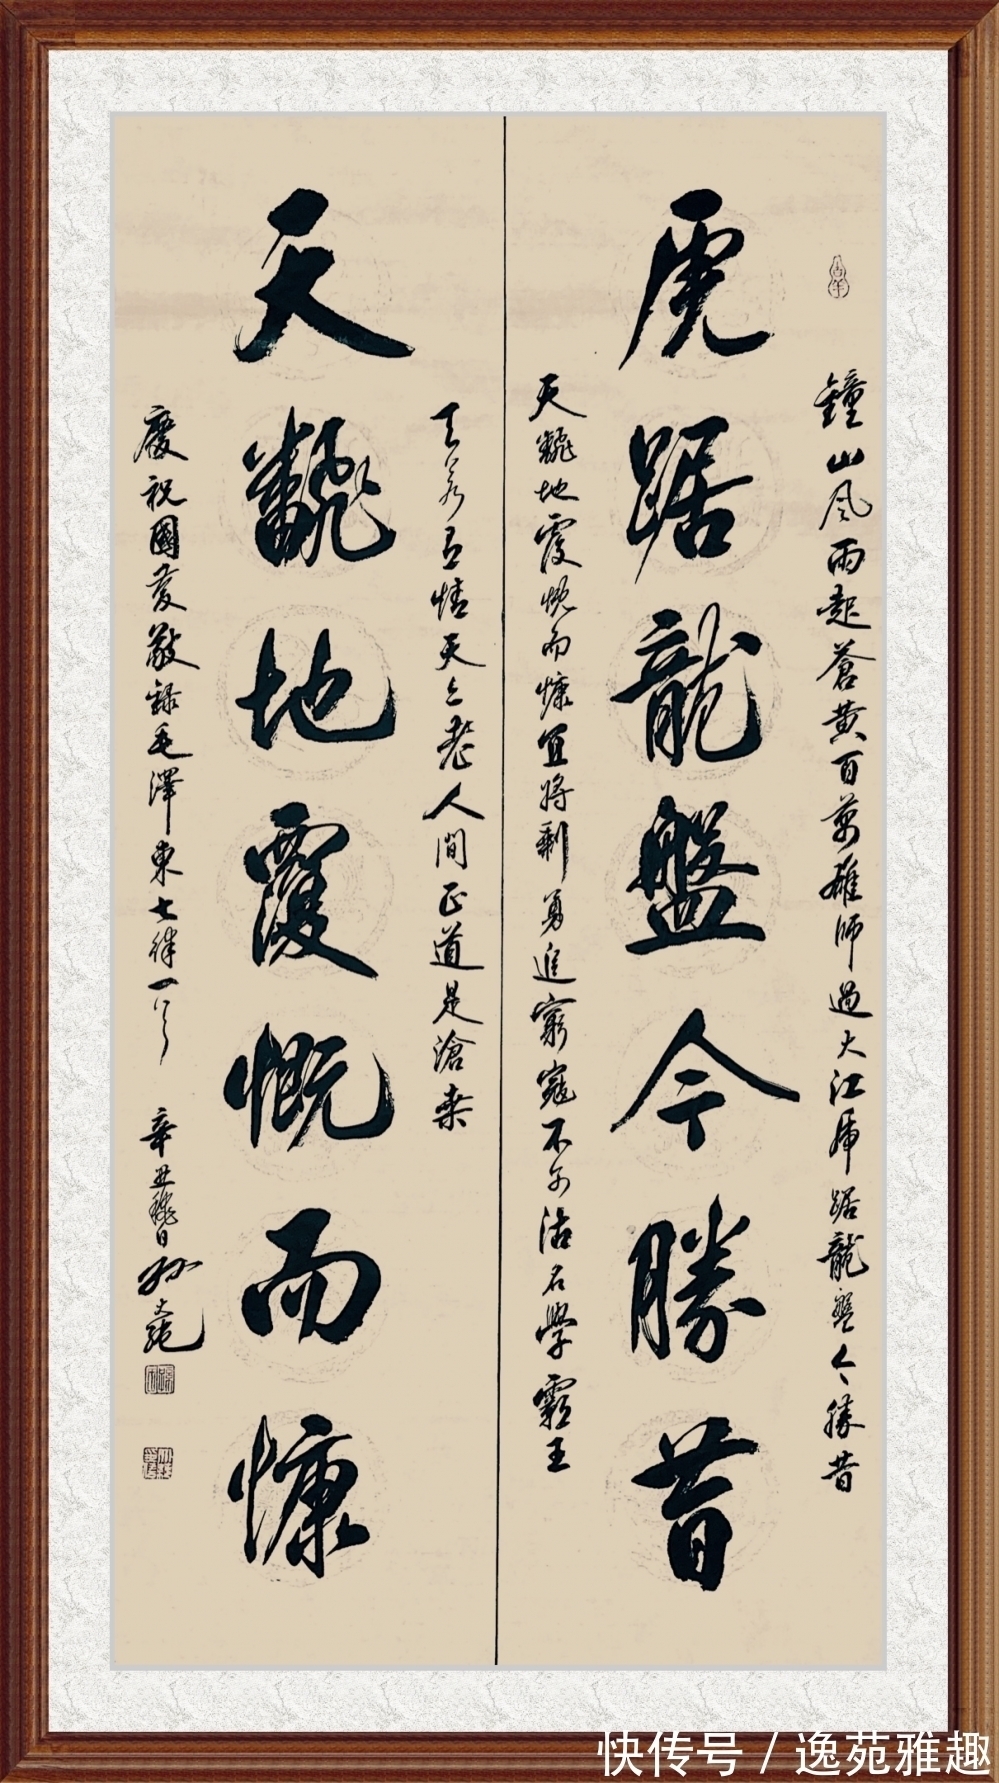 吉羊
鐘山風雨起蒼黄百萬雄師過大江虎踞龍盤今勝昔
虎踞龍盤今勝昔
天飜地覆慨而慷宜將剩勇追窮寇不可沽名學霸王
天若有情天亦老人間正道是滄桑
天飜地覆慨而慷
慶祝國慶敬録毛澤東七律一首 辛丑穐日孫文
快传号 / 逸苑雅趣